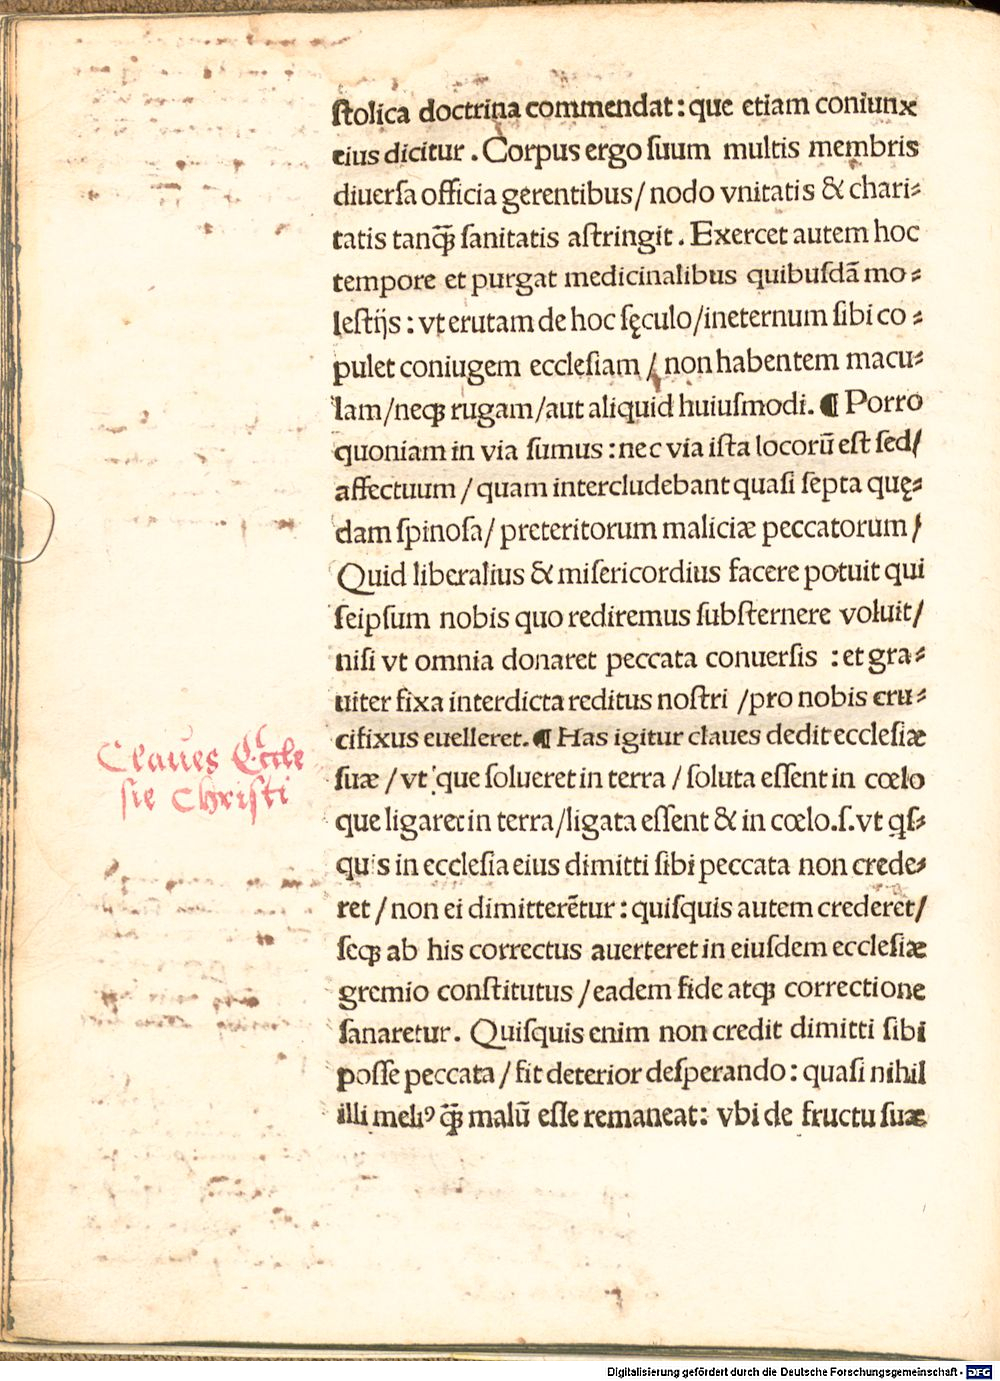 ſtolica doctrina commendat: que etiam coniunx
eius dicitur. Corpus ergo ſuum multis membris
diuerſa officia gerentibus/ nodo vnitatis & chari⸗
tatis tanꝙ̃ ſanitatis aſtringit. Exercet autem hoc
tempore et purgat medicinalibus quibuſdã mo⸗
leſtijs: vt erutam de hoc ſęculo/ineternum ſibi co⸗
pulet coniugem eccleſiam / non habentem macu⸗
lam/neqꝫ rugam/aut aliquid huiuſmodi. ¶ Porro
quoniam in via ſumus: nec via iſta locorũ eſt ſed/
affectuum / quam intercludebant quaſi ſepta quę⸗
dam ſpinoſa/ preteritorum maliciæ peccatorum /
Quid liberalius & miſericordius facere potuit qui
ſeipſum nobis quo rediremus ſubſternere voluit/
niſi vt omnia donaret peccata conuerſis : et gra⸗
uiter fixa interdicta reditus noſtri /pro nobis cru⸗
cifixus euelleret. ¶ Has igitur claues dedit eccleſiæ
Claues Eccle
ſie Chriſti
ſuæ / vt que ſolueret in terra / ſoluta eſſent in cœlo
que ligaret in terra/ligata eſſent & in cœlo.ſ.vt qſ⸗
quis in eccleſia eius dimitti ſibi peccata non crede⸗
ret / non ei dimitterẽtur: quiſquis autem crederet/
ſeqꝫ ab his correctus auerteret in eiuſdem eccleſiæ
gremio conſtitutus / eadem fide atqꝫ correctione
ſanaretur. Quiſquis enim non credit dimitti ſibi
poſſe peccata / fit deterior deſperando: quaſi nihil
illi meliꝰ ꝙ̃ malũ eſſe remaneat: vbi de fructu ſuæ
Digitalisierung gefördert durch die Deutsche Forschungsgemeinschaft - DFG